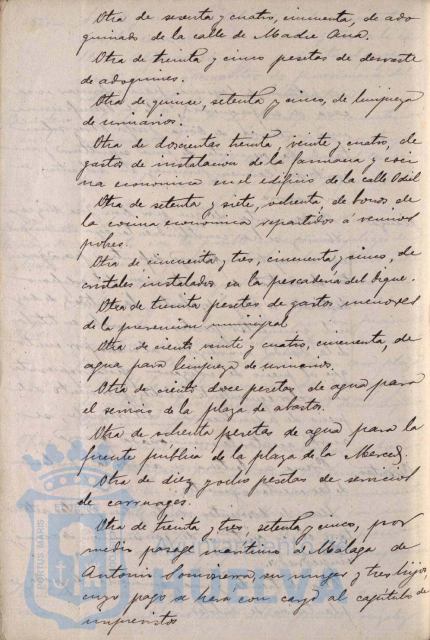 Otra de sesenta y cuatro, cincuenta, de ado
quinado de la calle de Madre Ana.
Otra de treinta y cinco pesetas de desvaste
de adoquines.
Otra de quince, setenta y cinco, de limpieza
de urinarios.
Otra de doscientas treinta, veinte y cuatro, de
gastos de instalacion de la farmacia y coci
na economica en el edificio de la calle Odiel
Otra de setenta y siete, ochenta, de bonos de
la cocina economica repartidos á vecinos
pobres.
Otra de cincuenta y tres, cincuenta y cinco, de
cristales instalados en la pescaderia del Dique.
Otra de treinta pesetas de gastos menores
de la prevencion municipal
Otra de ciento veinte y cuatro, cincuenta, de
agua para limpieza de urinarios.
Otra de ciento doce pesetas de agua para
el servicio de la plaza de abastos.
Otra de ochenta pesetas de agua para la
fuente publica de la plaza de la Merced.
Otra de diez y ocho pesetas de servicios
de carruages.
Otra de treinta y tres, setenta y cinco, por
medio pasage maritimo a Malaga de
Antonio su muger y tres hijos,
cuyo pago se hará con cargo al capitulo de
imprevistos
PORTUS MARIS
HUELVA